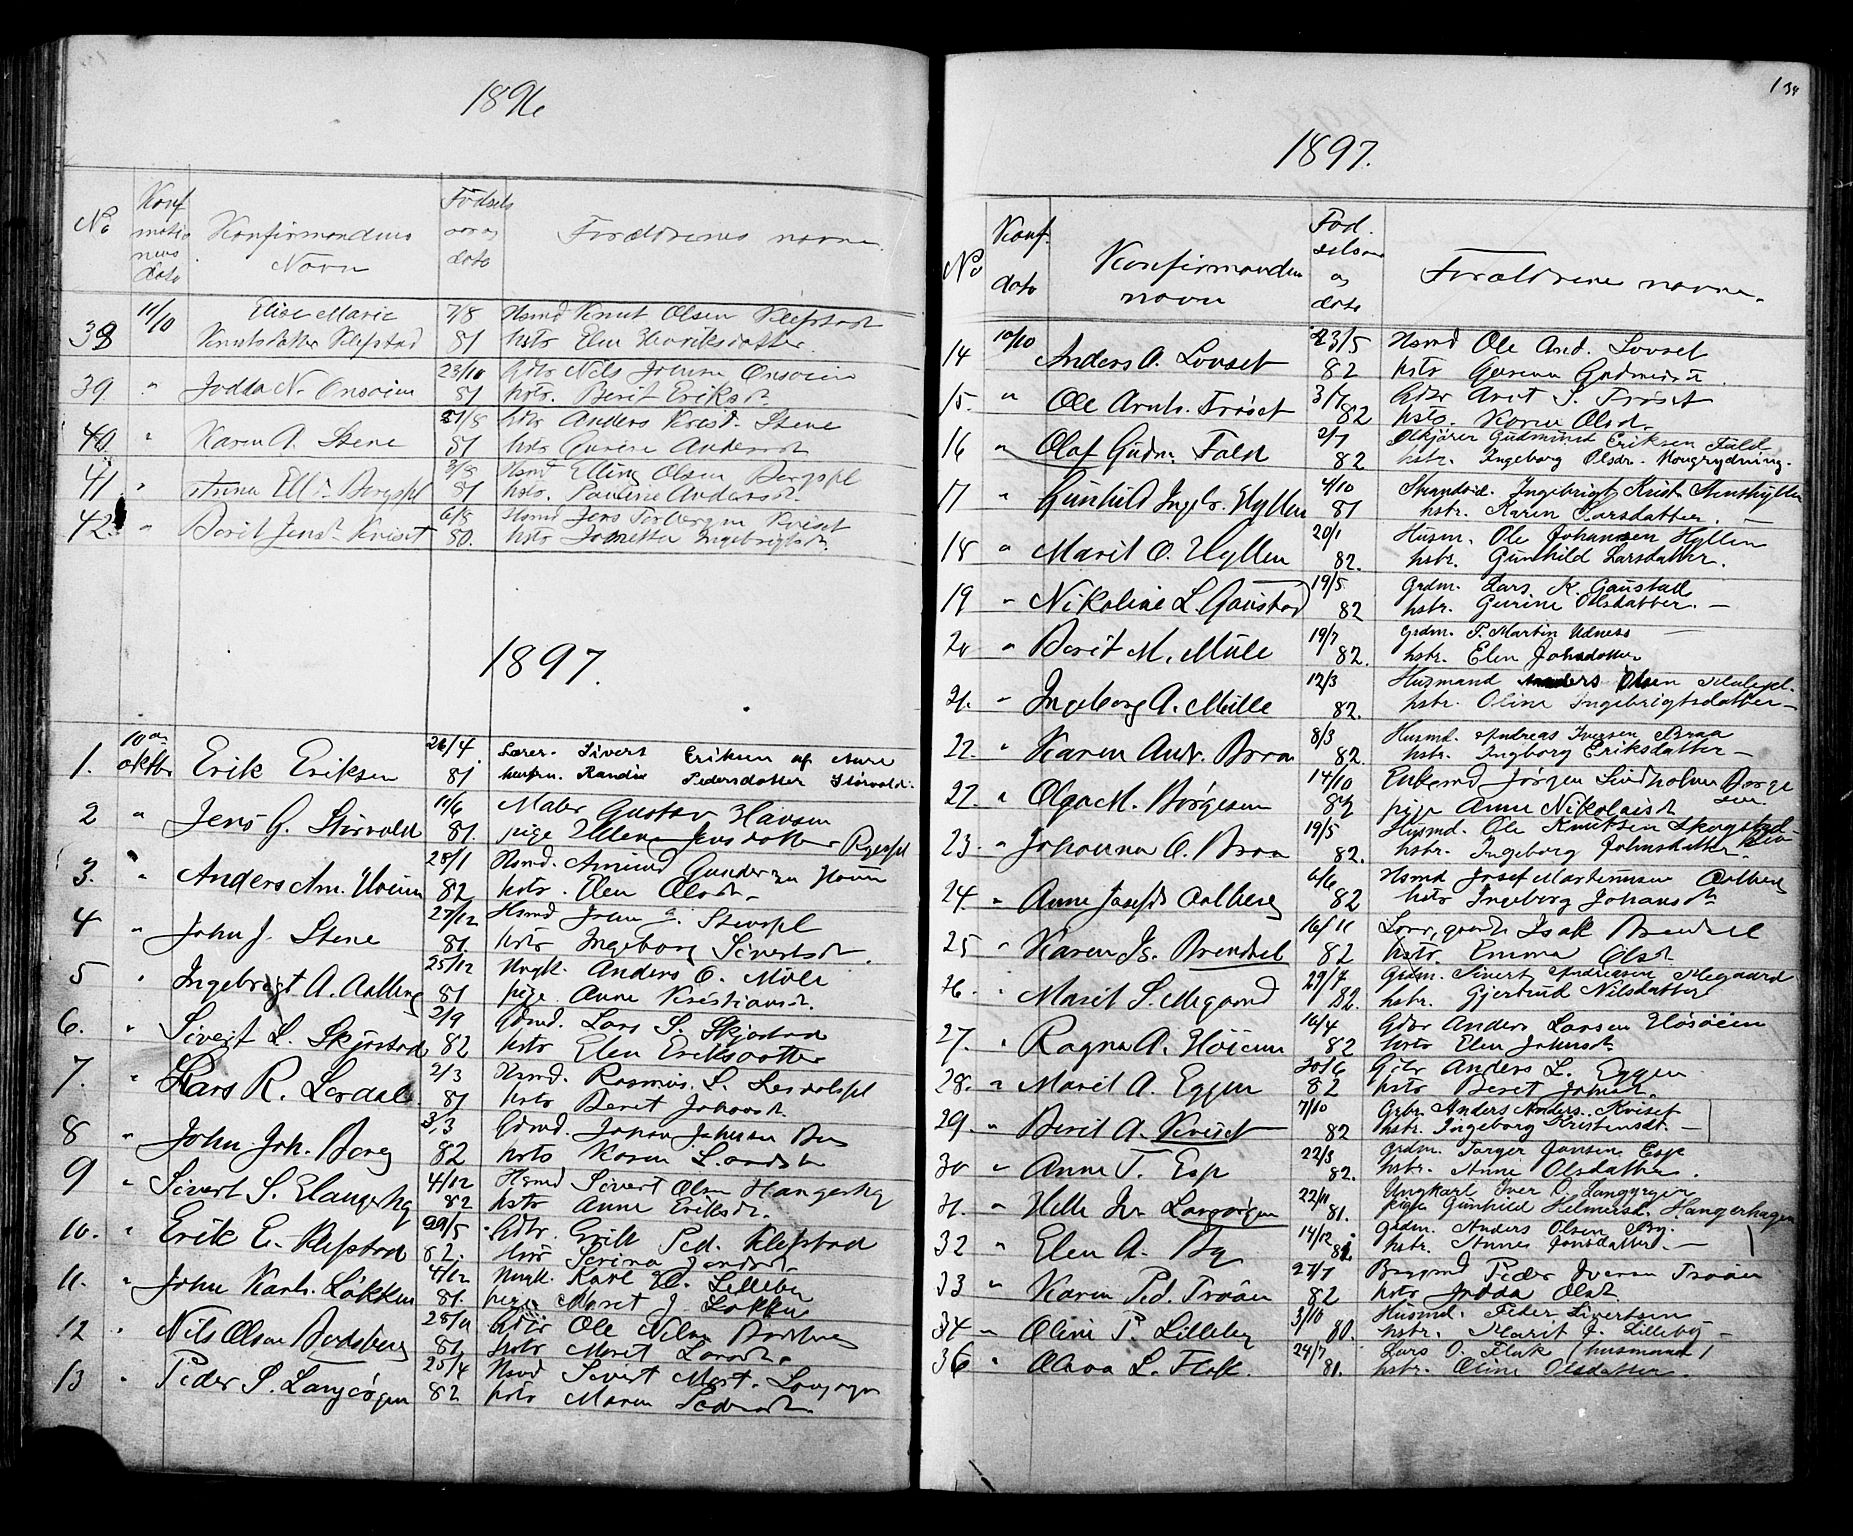 1896
No
Konf
matio
nens
dato
Konfirmandens
Navn
Födsels
aar og
dato
Forældrenes navne.
38 11/10 Elise Marie 7/8 Hsmd Knut Olsen Klefstad
Knutsdatter Klefstad 81 hstr Elen Henriksdatter.
39 " Jodda N. Onsöien 23/10 Gdbr Nils Johnsen Onsöien
81 hstr. Berit Eriksdt.
40 " Karen A. Stene 27/8 Gdbr Anders Krist. Stene
81 hstr Gurine Andersdt
41 " Anna Ell Bergspl 3/8 Hsmd Elling Olsen Bergspl
81 hstr. Pauline Andersdt.
42. " Berit Jensdt Kviset 6/8 Hsmd Jens Torbergsen Kviset
80. hstr Jonetta Ingebrigtsdt.
1897.
1. 10de oktbr Erik Eriksen 26/4 Lærer Sivert Eriksen af Aure
81 hustru. Randie Pedersdatter Störvold.
2 " Jens G. Störvold 11/6 Maler Gustav Hansen
81. pige Ellena Jensdatter Ryespl
3. " Anders Am. Hoeim 28/1 Hsmd. Amund Gundersen
82 hstr. Elen Olsdt.
4 " John J. Stene 27/12 Hsmd John Stenspl
81. hstr Ingeborg Sivertsdt.
5 " Ingebrigt A. Aalberg 25/12 Ungk. Anders O. Müle
81 pige Anne Kristiansdt.
6. " Sivert L. Skjerstad 2/9 Gdmd. Lars S. Skjerstad
82 hstr Elen Eriksdatter
7. " Lars R. Lerdal 2/3 Hsmd. Rasmus L. Lerdalspl
81 hstr Beret Johansdt.
8 " John Joh. Borg 3/3 Gdmd. Johan Johnsen
82 hstr Karen Larsdt
9 " Sivert S. Elangerhg 4/12 Hsmd Sivert Olsen Hangerhg
82 hstr Anne Eriksdt.
10. " Erik E. Klefstad 29/5 Gdbr. Erik Ped. Klefstad
82. hstr Serina
11. " John Karls. Lökken 4/12 Ungk. Karl E. Lilleby
81. pige Maret J. Lökken
12 " Nils Olsen Bordsberg 28/11 Gdbr Ole Nilsen
81 hstr Maret Larsdt.
13 " Peder S. Langörgen 25/4 Hsmd Sivert Mort. Langörgen
82 hstr Maren Pedersdt.
134
1897.
No
Konf.
dato
Konfirmanden
navn
Föd.
selsaar
og
dato
Forældrene navne.
14 10/10 Anders O. Lovset 23/5 Hsmd Ole And. Lovset
82 hstr Gurena Gudmundsdt.
15. " Ole Arnts. Tröset 3/7 Gdbr Arnt S. Tröset
82 hstr. Karen Olsd.
16 " Olaf Gudm. Fald 2/7 Gudmund Eriksen Fald
82 hstr. Ingeborg Olsdr. Haugrydning.
17 " Gunhild Ingbr. Hyllen 4/10 Strandsid. Ingebrigt Krist. Stenshyllen
81 hstr. Karen Larsdatter. —
18 " Marit O. Hyllen 20/1 Husm. Ole Johannsen Hyllen
82. hstr. Gunhild Larsdatter.
19 " Nikoline L. Gaustad 19/5 Grdm. Lars K. Gaustad
82 hstr. Gurine Olsdatter. —
20 " Berit M. Müle 19/7 Grdm. P. Martin Udness —
82. hstr. Elen Johsdatter
21. " Ingeborg A. Mülle 12/3 Husmand Anders Olsen Mulespl.
82. hstr. Oline Ingebrigtsdatter —
22. " Karen Andr. Braa 8/3 Husmd. Andreas Iversen Braa
82. hstr. Ingborg Eriksdatter —
22. " Olga M. Börgesen 14/10 Enkemd Jörgen Lindholm Börge
sen
82 pige Anne Nikolaisdt
23. " Johanna O. Braa 19/5 Husmd. Ole Knutsen Skogstad —
82. hstr. Ingeborg Johnsdatter Braa
24 " Anne Josefsdt Aalberg 6/6 Hsmd Josef Martinusen Aalberg
82 hstr Ingeborg Johansdt
25 " Karen Is. Brendsel 16/11 Isak Brendsel
82 hstr. Emma Olsdt
26. " Marit S. Megaard 29/7 Grdm. Sivert Andreasen Megaard
82. hstr. Gjertrud Nilsdatter
27. " Ragna A. Höieim 16/4 Gdbr Anders Larsen Hösöien
82 hstr Elen Johnsdt
28. " Marit A. Eggen 30/6 Gdbr Anders L. Eggen
82 hstr Beret Johnsdt.
29. " Berit A. Kviset 7/10 Grbr. Anders Anders. Kviset
82 hstr. Ingeborg Kristensdt. —
30 " Anne T. Esp 22/3 Grdm. Torger Jonsen Esp
82. hstr. Anne Olsdatter.
31. " Helle Iv. Langörgen 22/11 Ungkarl Iver O. Langörgen
81. pige Gunhild Helmersd. Hangerhagen
32 " Elen A. By 14/12 Grdm. Anders Olsen By.
81. hstr. Annes Jonsdatter. —
33 " Karen Ped. Troöen 27/7 Peder Iversen Troöen
82 hstr Jodda Olsdt
34 " Oline P. Lilleby 3/10 Husmd. Peder Sivertsen
80. hstr. Marit J. Lilleby —
36 " Olava L. Flak. 24/7 Lars O. Flak (husmand)
81. hstr. Oline Olsdatter.